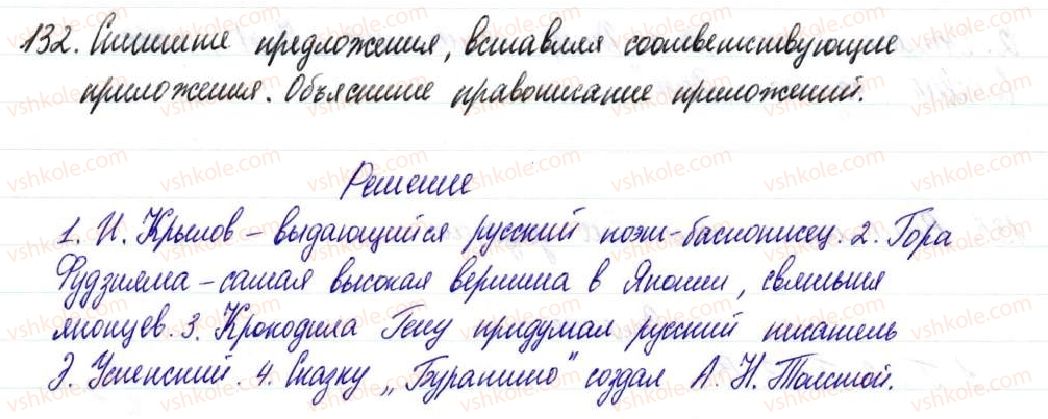 132. Спишите предложения, вставляя соответствующие
приложения. Объясните правописание приложений.
Решение
1. И. Крылов – выдающийся русский поэт-баснописец. 2. Гора
Фудзияма – самая высокая вершина в Японии, святыня
японцев. 3. Крокодила Гену придумал русский писатель
Э. Успенский. 4. Сказку „Буратино" создал А. Н. Толстой.